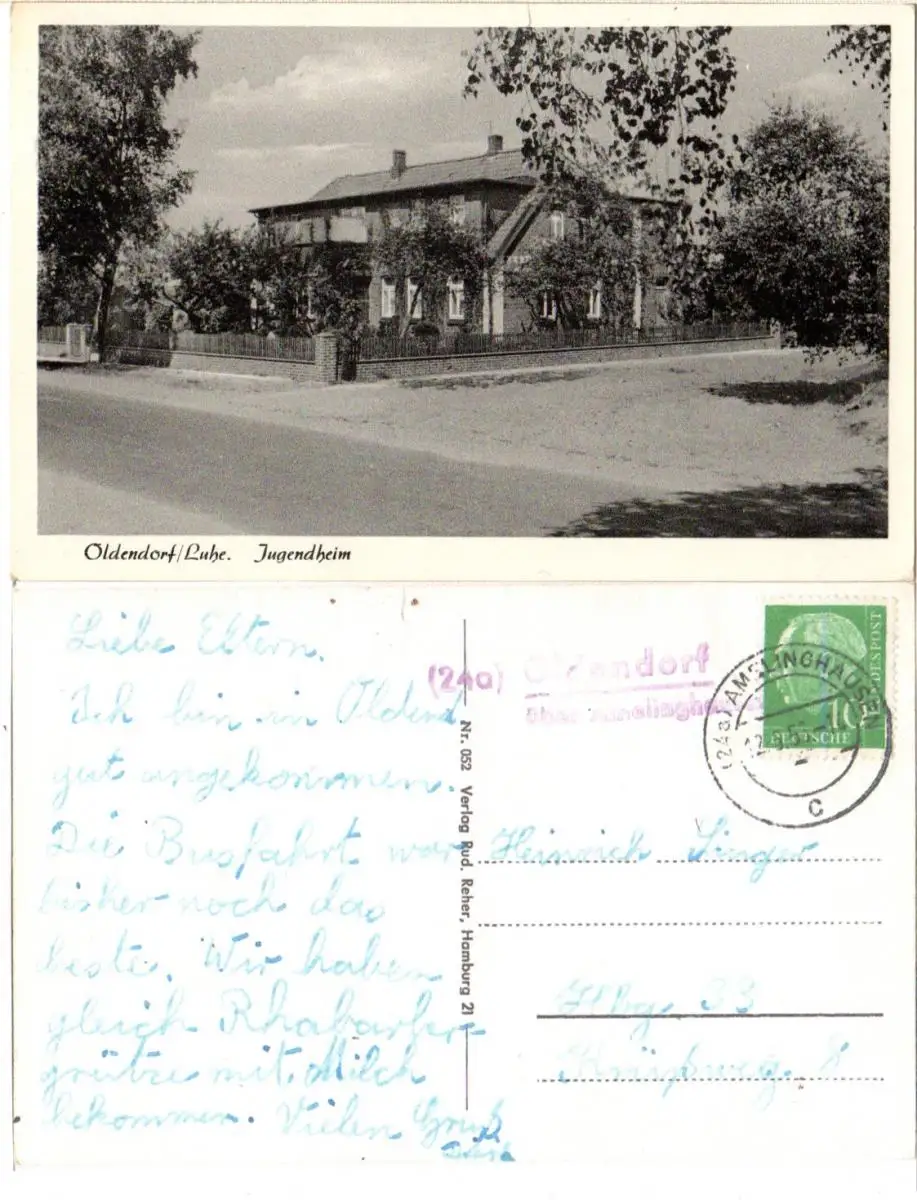 Oldendorf/Luhe. Jugendheim
Liebe Eltern.
Ich bin in Oldend
gut angekommen.
Die Busfahrt war
bisher noch das
beste. Wir haben
gleich Rhabarber-
grütze mit Milch
bekommen. Vielen Gruß
Nr. 052 Verlag Rud. Reher, Hamburg 21
(24a) Oldendorf
über Amelinghausen
(24a) AMELINGHAUSEN
c
DEUTSCHE BUNDESPOST
10
Heinrich Singer
Hbg. 33
8